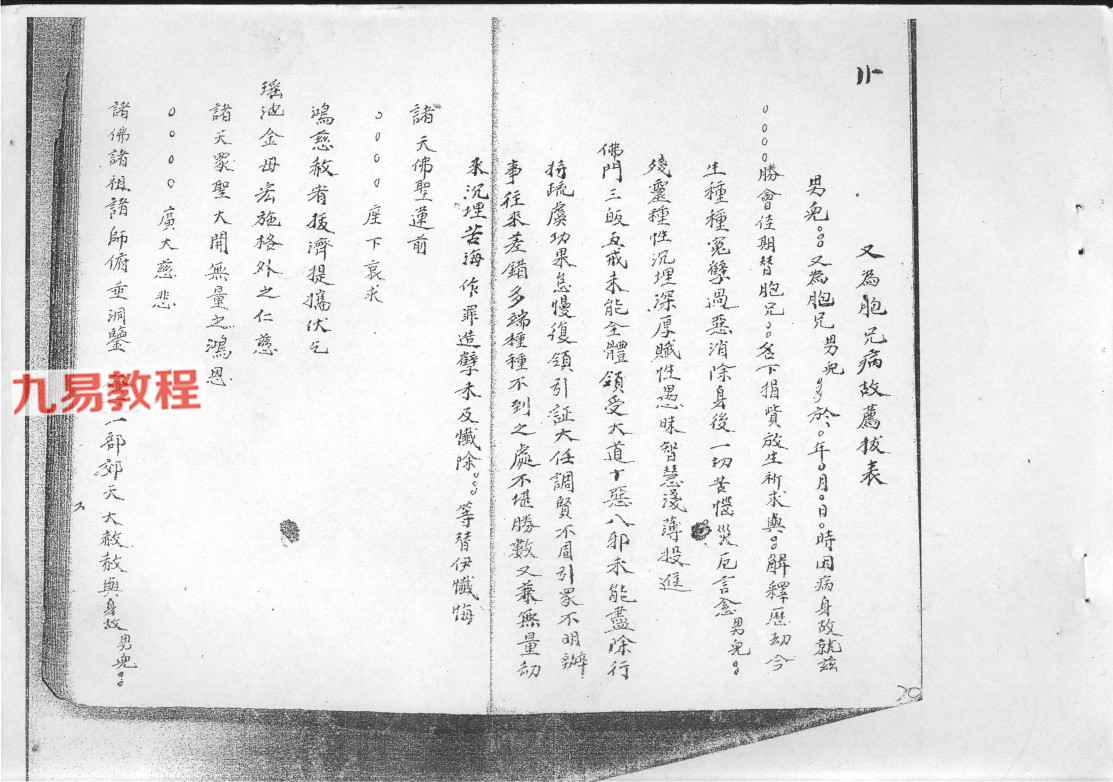 又為胞兄病故薦拔表
男兒○○又為胞兄男兒○○於○年○月○日○時因病身故就茲
○○○○勝會佳期替胞兄○○名下捐貲放生祈求與○解釋歷劫今
生種種冤孽過惡消除身後一切苦惱災厄言念男兒○○
殘靈種性沉埋深厚賦性愚昧智慧淺薄投進
佛門三皈五戒未能全體領受大道十惡八邪未能盡除行
持疏虞功果怠慢復領引証大任調賢不周引眾不明辦
事往來差錯多端種種不到之處不堪勝數又兼無量劫
來沉埋苦海作罪造孽未及懺除○○等替伊懺悔
諸天佛聖蓮前
○○○○座下哀求
鴻慈赦宥援濟提攜伏乞
瑶池金母宏施格外之仁慈
諸天眾聖大開無量之鴻恩
○○○○廣大慈悲
諸佛諸祖諸師俯垂洞鑒 一部郊天大赦赦與身故男兒○○
九易教程
20